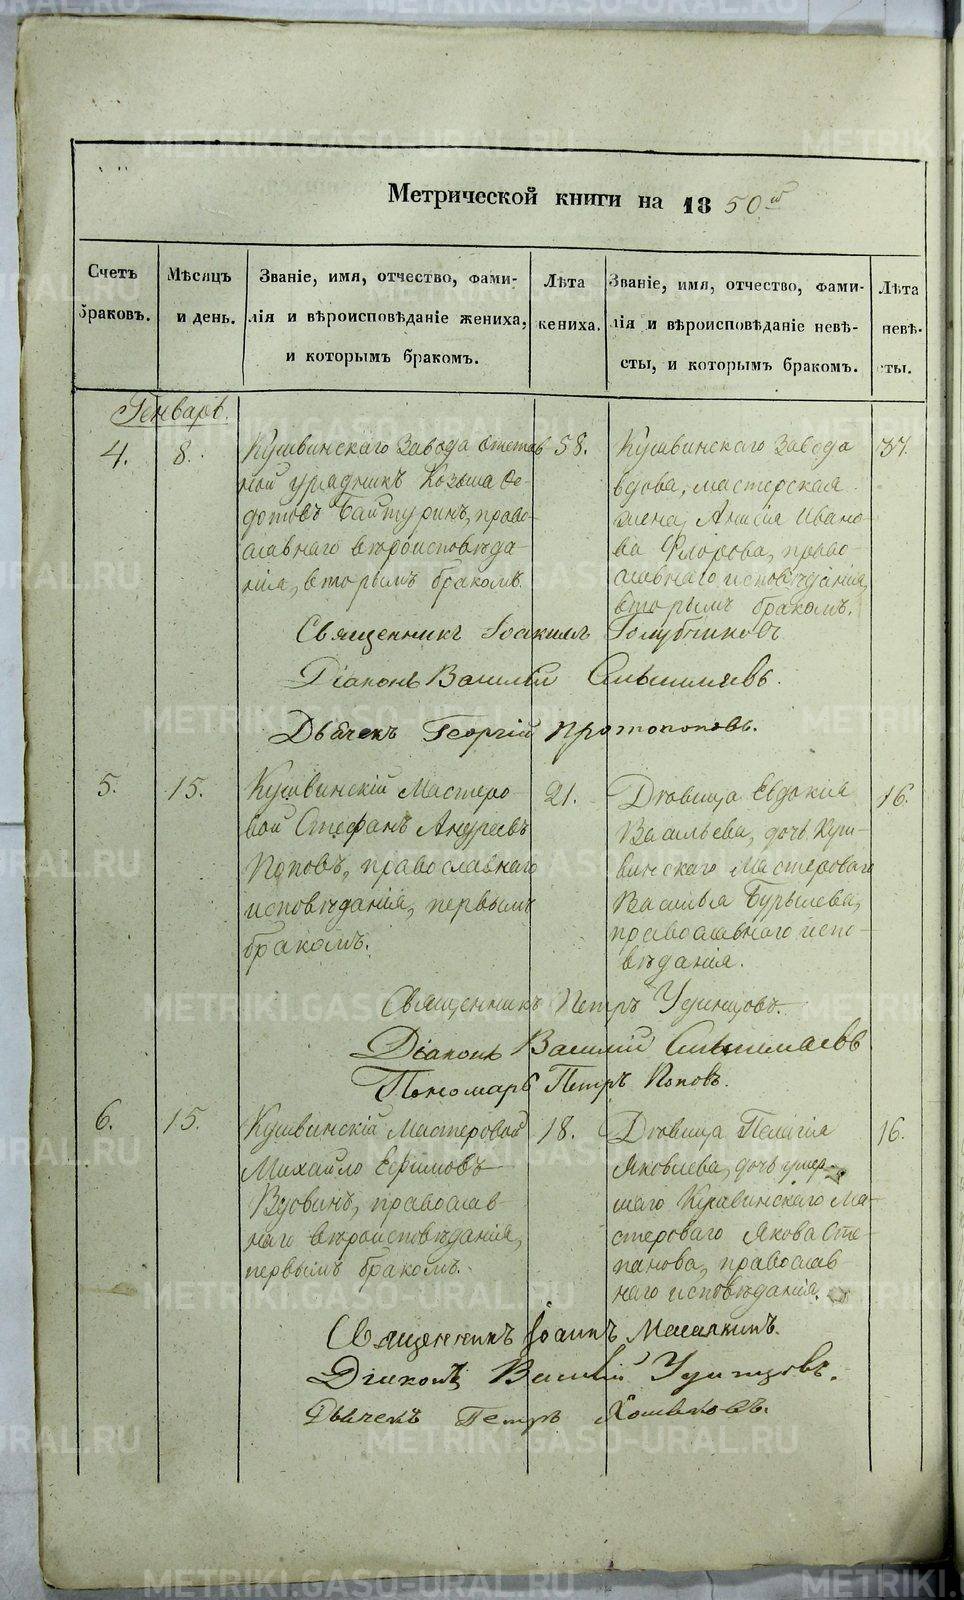 Метрической книги на 1850й
Счетъ браковъ.
Мѣсяцъ и день.
Званіе, имя, отчество, фами-
лія и вѣроисповѣданіе жениха,
и которымъ бракомъ.
Лѣта
жениха.
Званіе, имя, отчество, фами-
лія и вѣроисповѣданіе невѣ-
сты, и которымъ бракомъ.
Лѣта
невѣ-
сты.
Генварь.
4.
8.
Кушвинскаго Завода отстав
ной урядникъ Козьма Ѳе
дотовъ Байтуринъ, право-
славнаго вѣроисповѣда-
нія, вторымъ бракомъ.
58.
Кушвинскаго Завода
вдова, мастерская
жена, Анисія Ивано-
ва Флорова, право-
славнаго исповѣданія,
вторымъ бракомъ.
37.
Священникъ Іоакимъ Голубчиковъ
Діаконъ Василій
Дьячекъ Георгій Протопоповъ.
5.
15.
Кушвинскій Мастеро-
вой Стефанъ Андреевъ
Поповъ, православнаго
исповѣданія, первымъ
бракомъ.
21.
Дѣвица Евдокія
Васильева, дочь Куш-
винскаго Мастероваго
Василья Бурылева,
православнаго испо-
вѣданія.
16.
Священникъ Петръ Удинцовъ.
Діаконъ Василій
Пономарь Петръ Поповъ.
6.
15.
Кушвинскій Мастеровой
Михайло Ефимовъ
Вдовинъ, православ-
наго вѣроисповѣданія,
первымъ бракомъ.
18.
Дѣвица Пелагія
Яковлева, дочь умер-
шаго Кушвинскаго Ма-
стероваго Якова Сте-
панова, православ-
наго исповѣданія.
16.
Священникъ Іоаннъ
Діаконъ Василій Удинцовъ.
Дьячекъ Петръ
METRIKI.GASO-URAL.RU